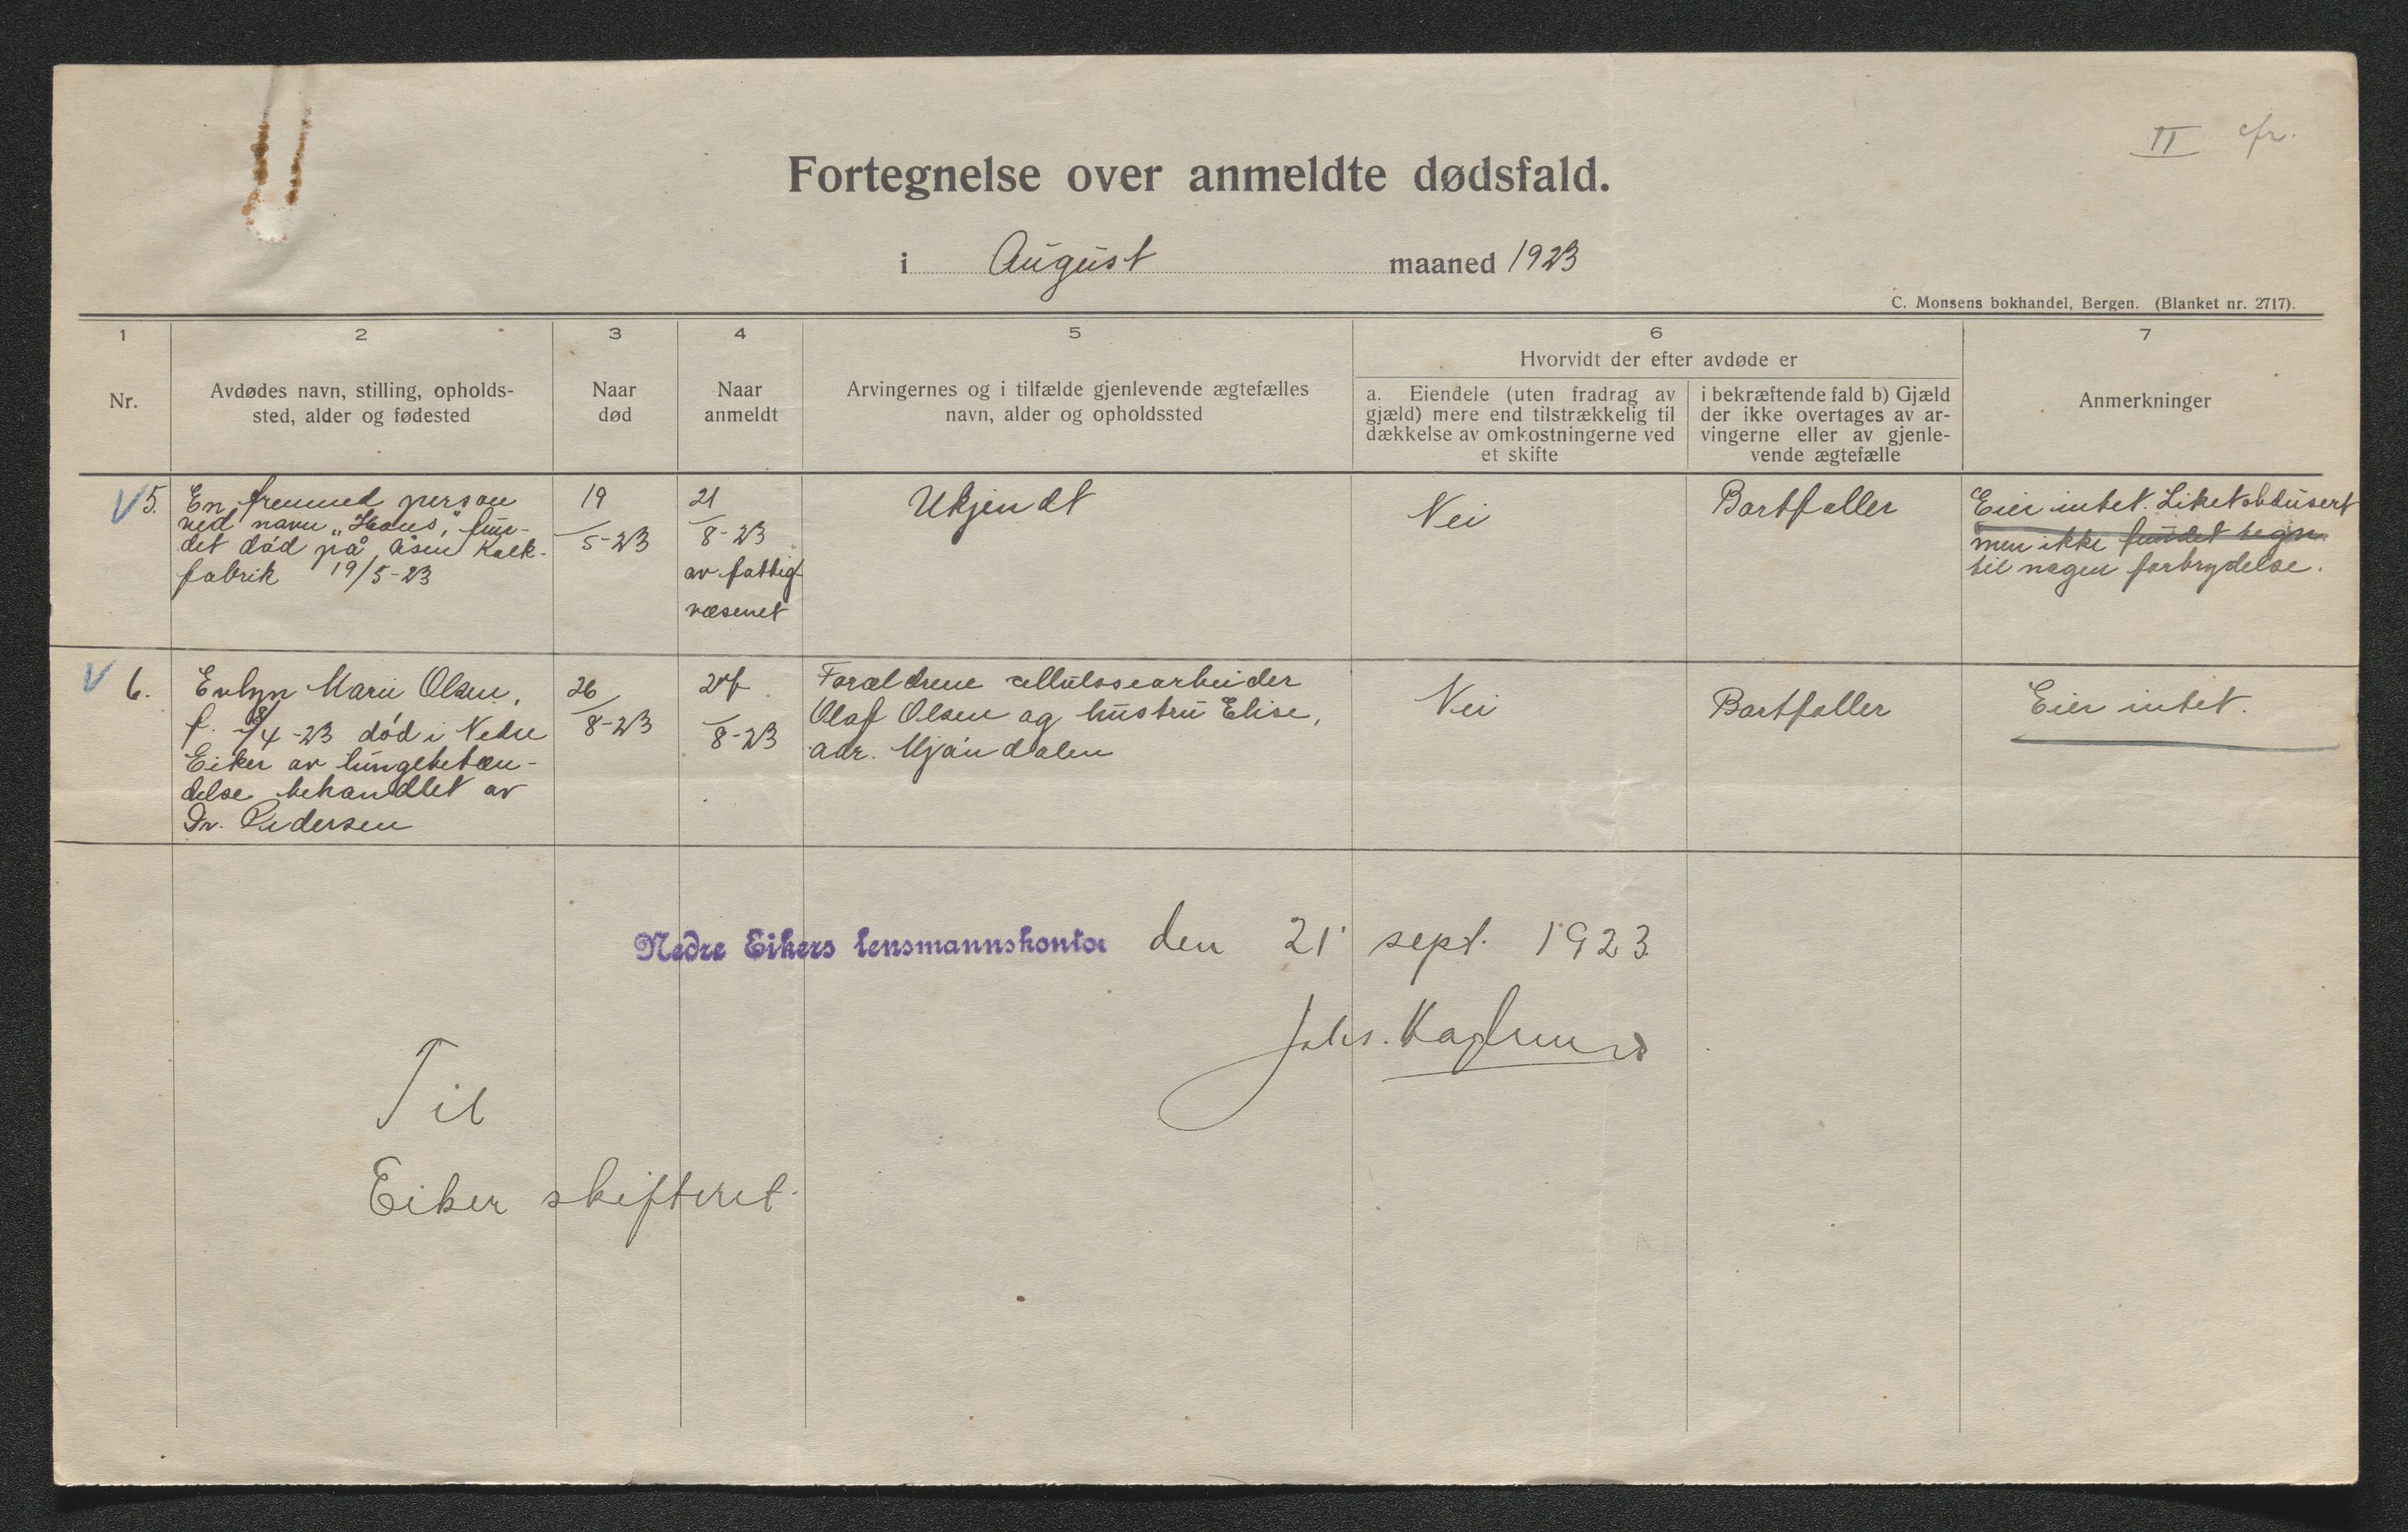 II cfr.
Fortegnelse over anmeldte dødsfald.
i August maaned 1923
C. Monsens bokhandel, Bergen. (Blanket nr. 2717).
1 2 3 4 5 6 7
Hvorvidt der efter avdøde er
Nr.
Avdødes navn, stilling, opholds-
sted, alder og fødested
Naar
død
Naar
anmeldt
Arvingernes og i tilfælde gjenlevende ægtefælles
navn, alder og opholdssted
a. Eiendele (uten fradrag av
gjæld) mere end tilstrækkelig til
dækkelse av omkostningerne ved
et skifte
i bekræftende fald b) Gjæld
der ikke overtages av ar-
vingerne eller av gjenle-
vende ægtefælle
Anmerkninger
V 5.
En fremmed person
ved navn "Hans", fun-
det død på Åsen Kalk-
fabrik 19/5-23
19
/5-23
21
/8-23
av fattig-
væsenet
Ukjendt
Nei
Bortfaller
Eier intet. Liket obdusert
men ikke fundet tegn
til nogen forbrydelse.
V 6.
Evlyn Marie Olsen,
f. /4-23 død i Nedre
Eiker av lungebetæn-
delse behandlet av
Dr. Pedersen
26
/8-23
/8-23
Forældrene cellulosearbeider
Olaf Olsen og hustru Elise,
adr. Mjøndalen
Nei
Bortfaller
Eier intet.
Nedre Eikers lensmannskontor den 21 sept. 1923
Johs.
Til
Eiker skifteret.